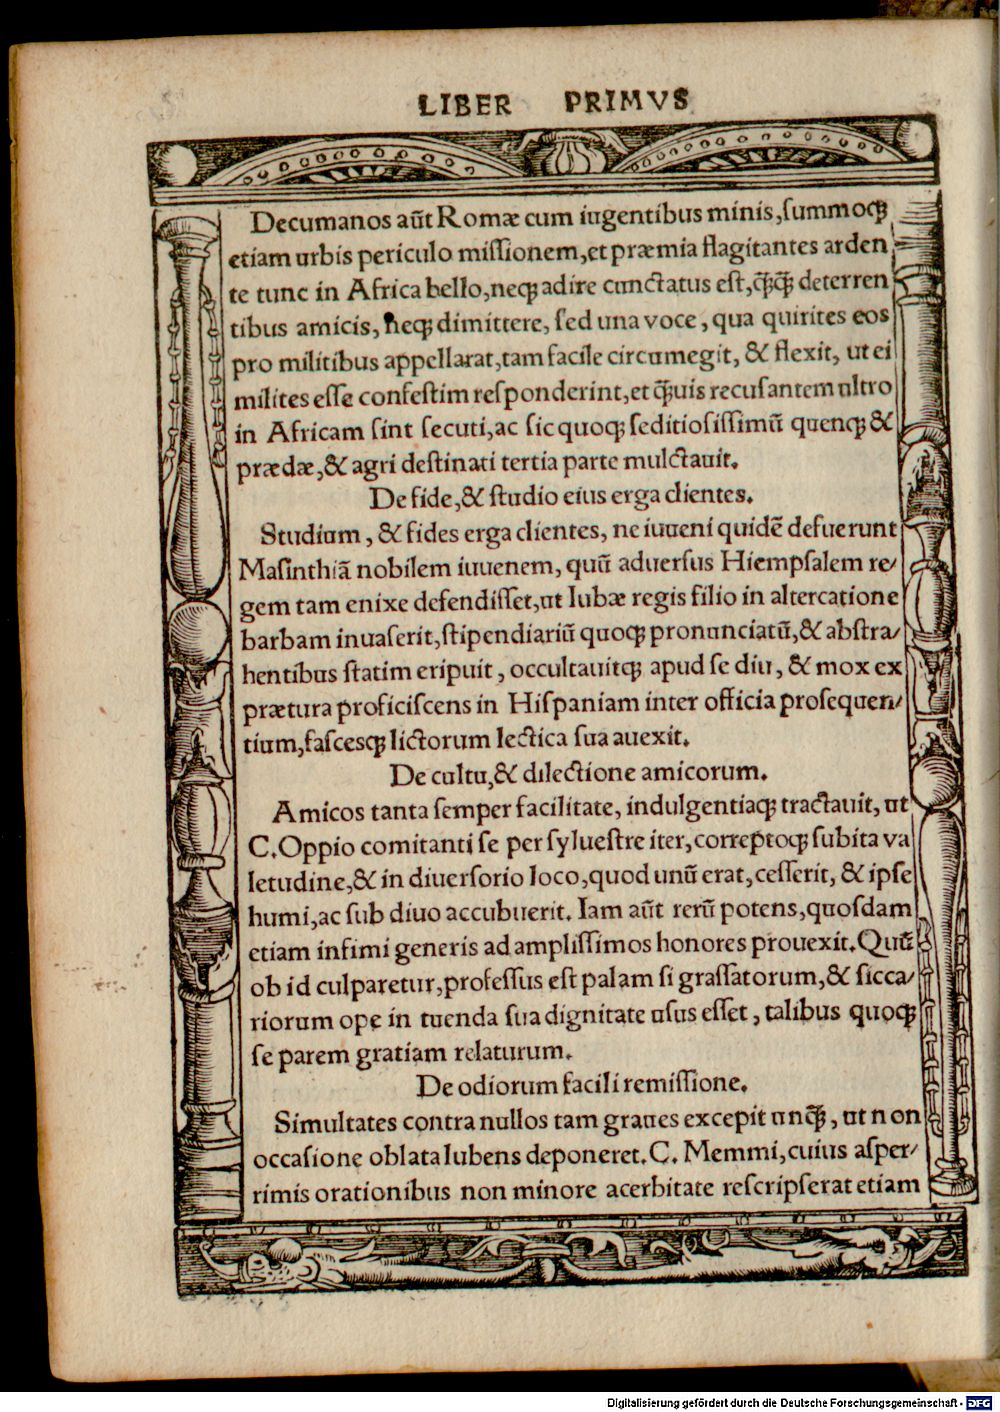 LIBER PRIMVS
Decumanos aūt Romæ cum iugentibus minis, summoqꝫ
etiam urbis periculo missionem, et præmia flagitantes arden
te tunc in Africa bello, neqꝫ adire cunctatus est, q̄qꝫ̄ deterren
tibus amicis, neqꝫ dimittere, sed una voce, qua quirites eos
pro militibus appellarat, tam facile circumegit, & flexit, ut ei
milites esse confestim responderint, et q̄uis recusantem ultro
in Africam sint secuti, ac sic quoqꝫ seditiosissimū quenqꝫ &
prædæ, & agri destinati tertia parte mulctauit.
De fide, & studio eius erga clientes.
Studium, & fides erga clientes, ne iuueni quidē defuerunt
Masinthiā nobilem iuuenem, quū aduersus Hiempsalem re/
gem tam enixe defendisset, ut Iubæ regis filio in altercatione
barbam inuaserit, stipendiariū quoqꝫ pronunciatū, & abstra/
hentibus statim eripuit, occultauitqꝫ apud se diu, & mox ex
prætura proficiscens in Hispaniam inter officia prosequen/
tium, fascesqꝫ lictorum lectica sua auexit.
De cultu, & dilectione amicorum.
Amicos tanta semper facilitate, indulgentiaqꝫ tractauit, ut
C. Oppio comitanti se per syluestre iter, correptoqꝫ subita va
letudine, & in diuersorio loco, quod unū erat, cesserit, & ipse
humi, ac sub diuo accubuerit. Iam aūt rerū potens, quosdam
etiam infimi generis ad amplissimos honores prouexit. Quū
ob id culparetur, professus est palam si grassatorum, & sicca/
riorum ope in tuenda sua dignitate usus esset, talibus quoqꝫ
se parem gratiam relaturum.
De odiorum facili remissione.
Simultates contra nullos tam graues excepit unqꝫ̄, ut non
occasione oblata lubens deponeret. C. Memmi, cuius asper/
rimis orationibus non minore acerbitate rescripserat etiam
Digitalisierung gefördert durch die Deutsche Forschungsgemeinschaft - DFG